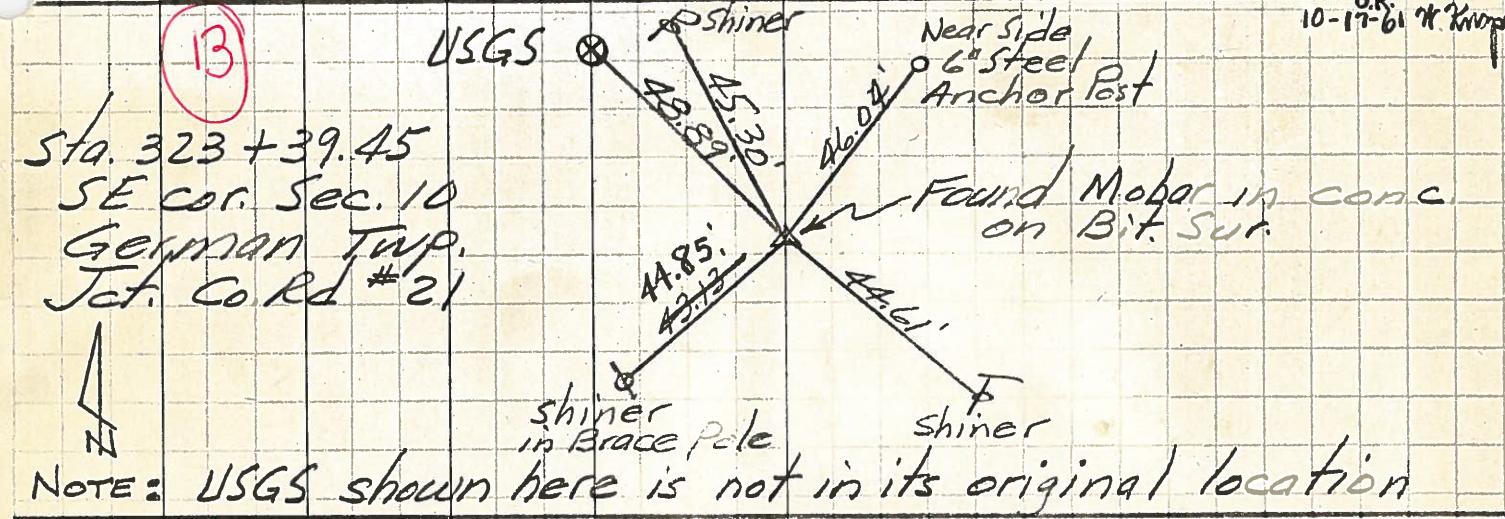 13
USGS
Shiner
Near Side
6" Steel
Anchor Post
O.K.
10-17-61
48.89'
45.30'
46.04'
Sta. 323 + 39.45
SE cor. Sec. 10
German Twp.
Jct. Co Rd #21
Found Mobar in conc.
on Bit. Sur.
44.85'
43.13'
44.61'
N
Shiner
in Brace Pole
Shiner
NOTE: USGS shown here is not in its original location